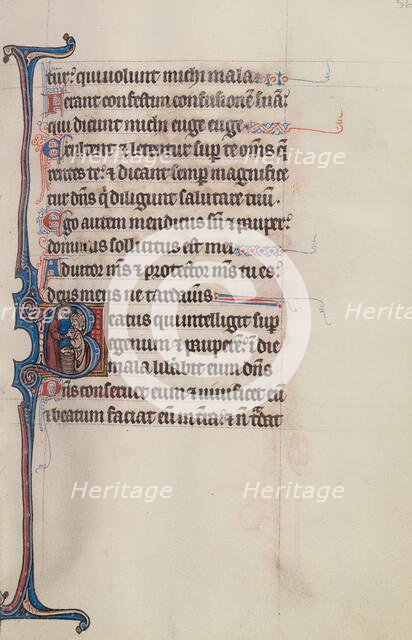 56
tur: qui uolunt michi mala
Ferant confestim confusionē suā:
qui dicunt michi euge euge
Exultent & letentur sup te om̄s q̄
rentes te: & dicant semp magnifice
tur dn̄s q̄ diligunt salutare tuū
Ego autem mendicus sū & pauper:
dominus sollicitus est mei
Adiutor m̄s & protector m̄s tu es:
deus meus ne tardaueris
Beatus qui intelligit sup
egenum & pauperē: ī die
mala liberabit eum dn̄s
Dn̄s conseruet eum & uiuificet eū
& beatum faciat eū in t̄ra: & n̄ t̄dat
Heritage Heritage
Heritage Heritage
Heritage Heritage